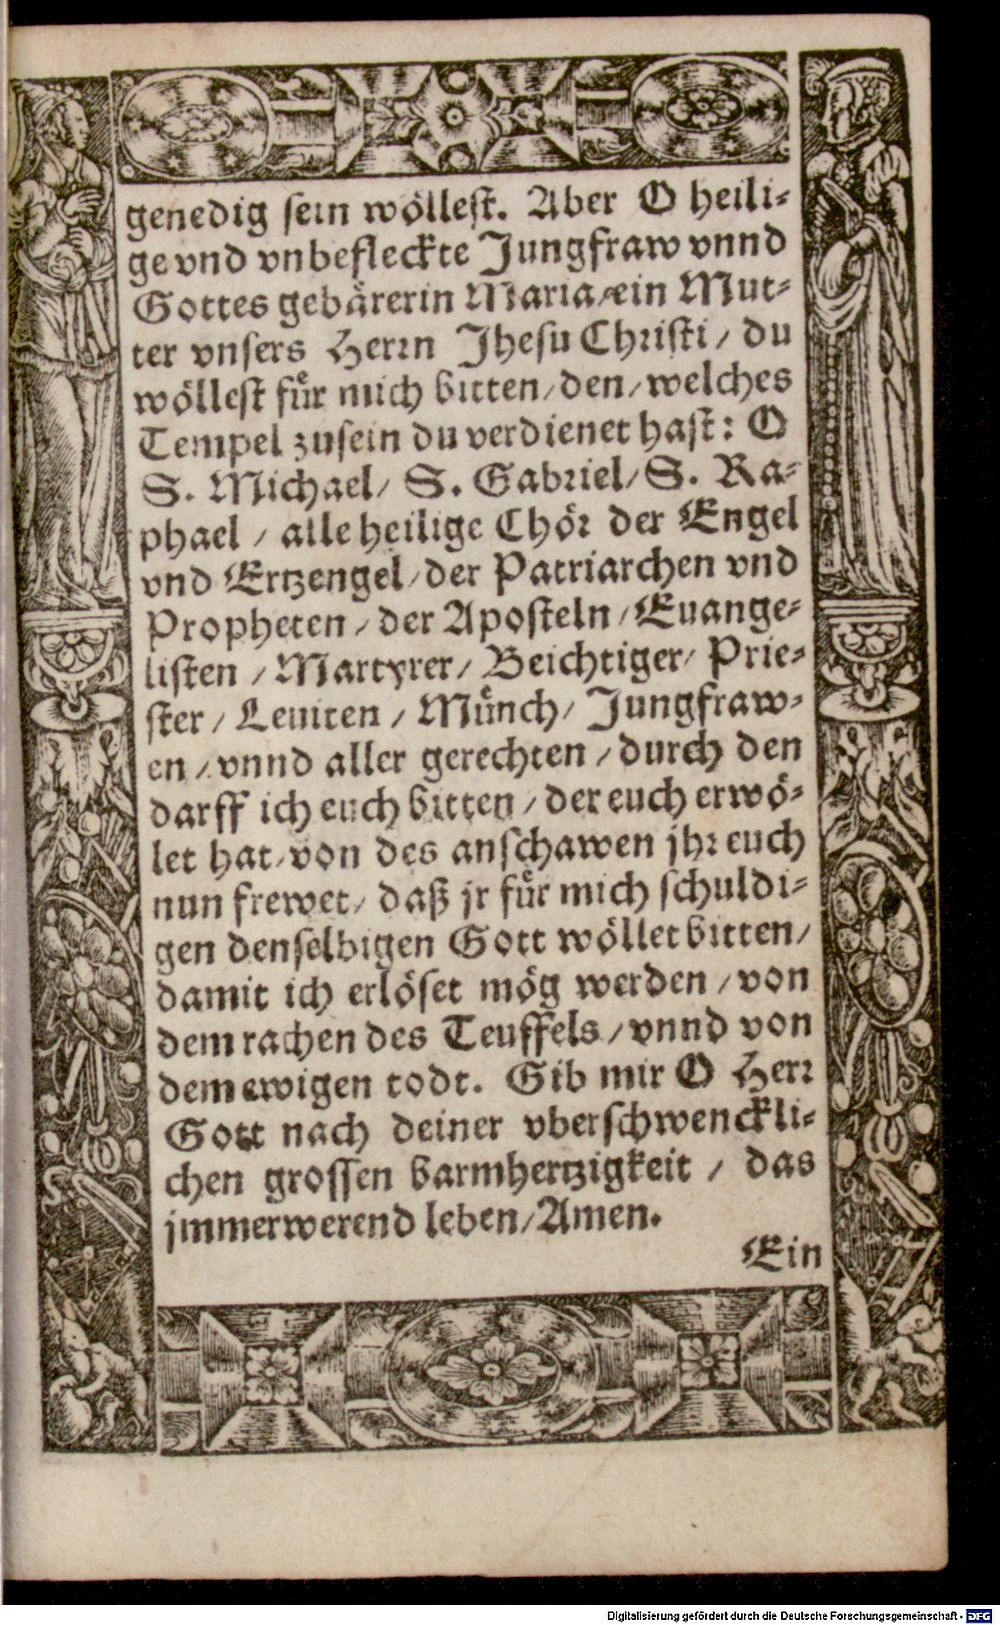 genedig sein wöllest. Aber O heili-
ge vnd vnbefleckte Jungfraw vnnd
Gottes gebärerin Maria/ ein Mut-
ter vnsers Herrn Jhesu Christi/ du
wöllest für mich bitten/ den/ welches
Tempel zusein du verdienet hast: O
S. Michael/ S. Gabriel/ S. Ra-
phael/ alle heilige Chör der Engel
vnd Ertzengel/ der Patriarchen vnd
Propheten/ der Aposteln/ Euange-
listen/ Martyrer/ Beichtiger/ Prie-
ster/ Leuiten/ Münch/ Jungfraw-
en/ vnnd aller gerechten/ durch den
darff ich euch bitten/ der euch erwö-
let hat/ von des anschawen jhr euch
nun frewet/ daß jr für mich schuldi-
gen denselbigen Gott wöllet bitten/
damit ich erlöset mög werden/ von
dem rachen des Teuffels/ vnnd von
dem ewigen todt. Gib mir O Herr
Gott nach deiner vberschwenckli-
chen grossen barmhertzigkeit/ das
jmmerwerend leben/ Amen.
Ein
Digitalisierung gefördert durch die Deutsche Forschungsgemeinschaft - DFG